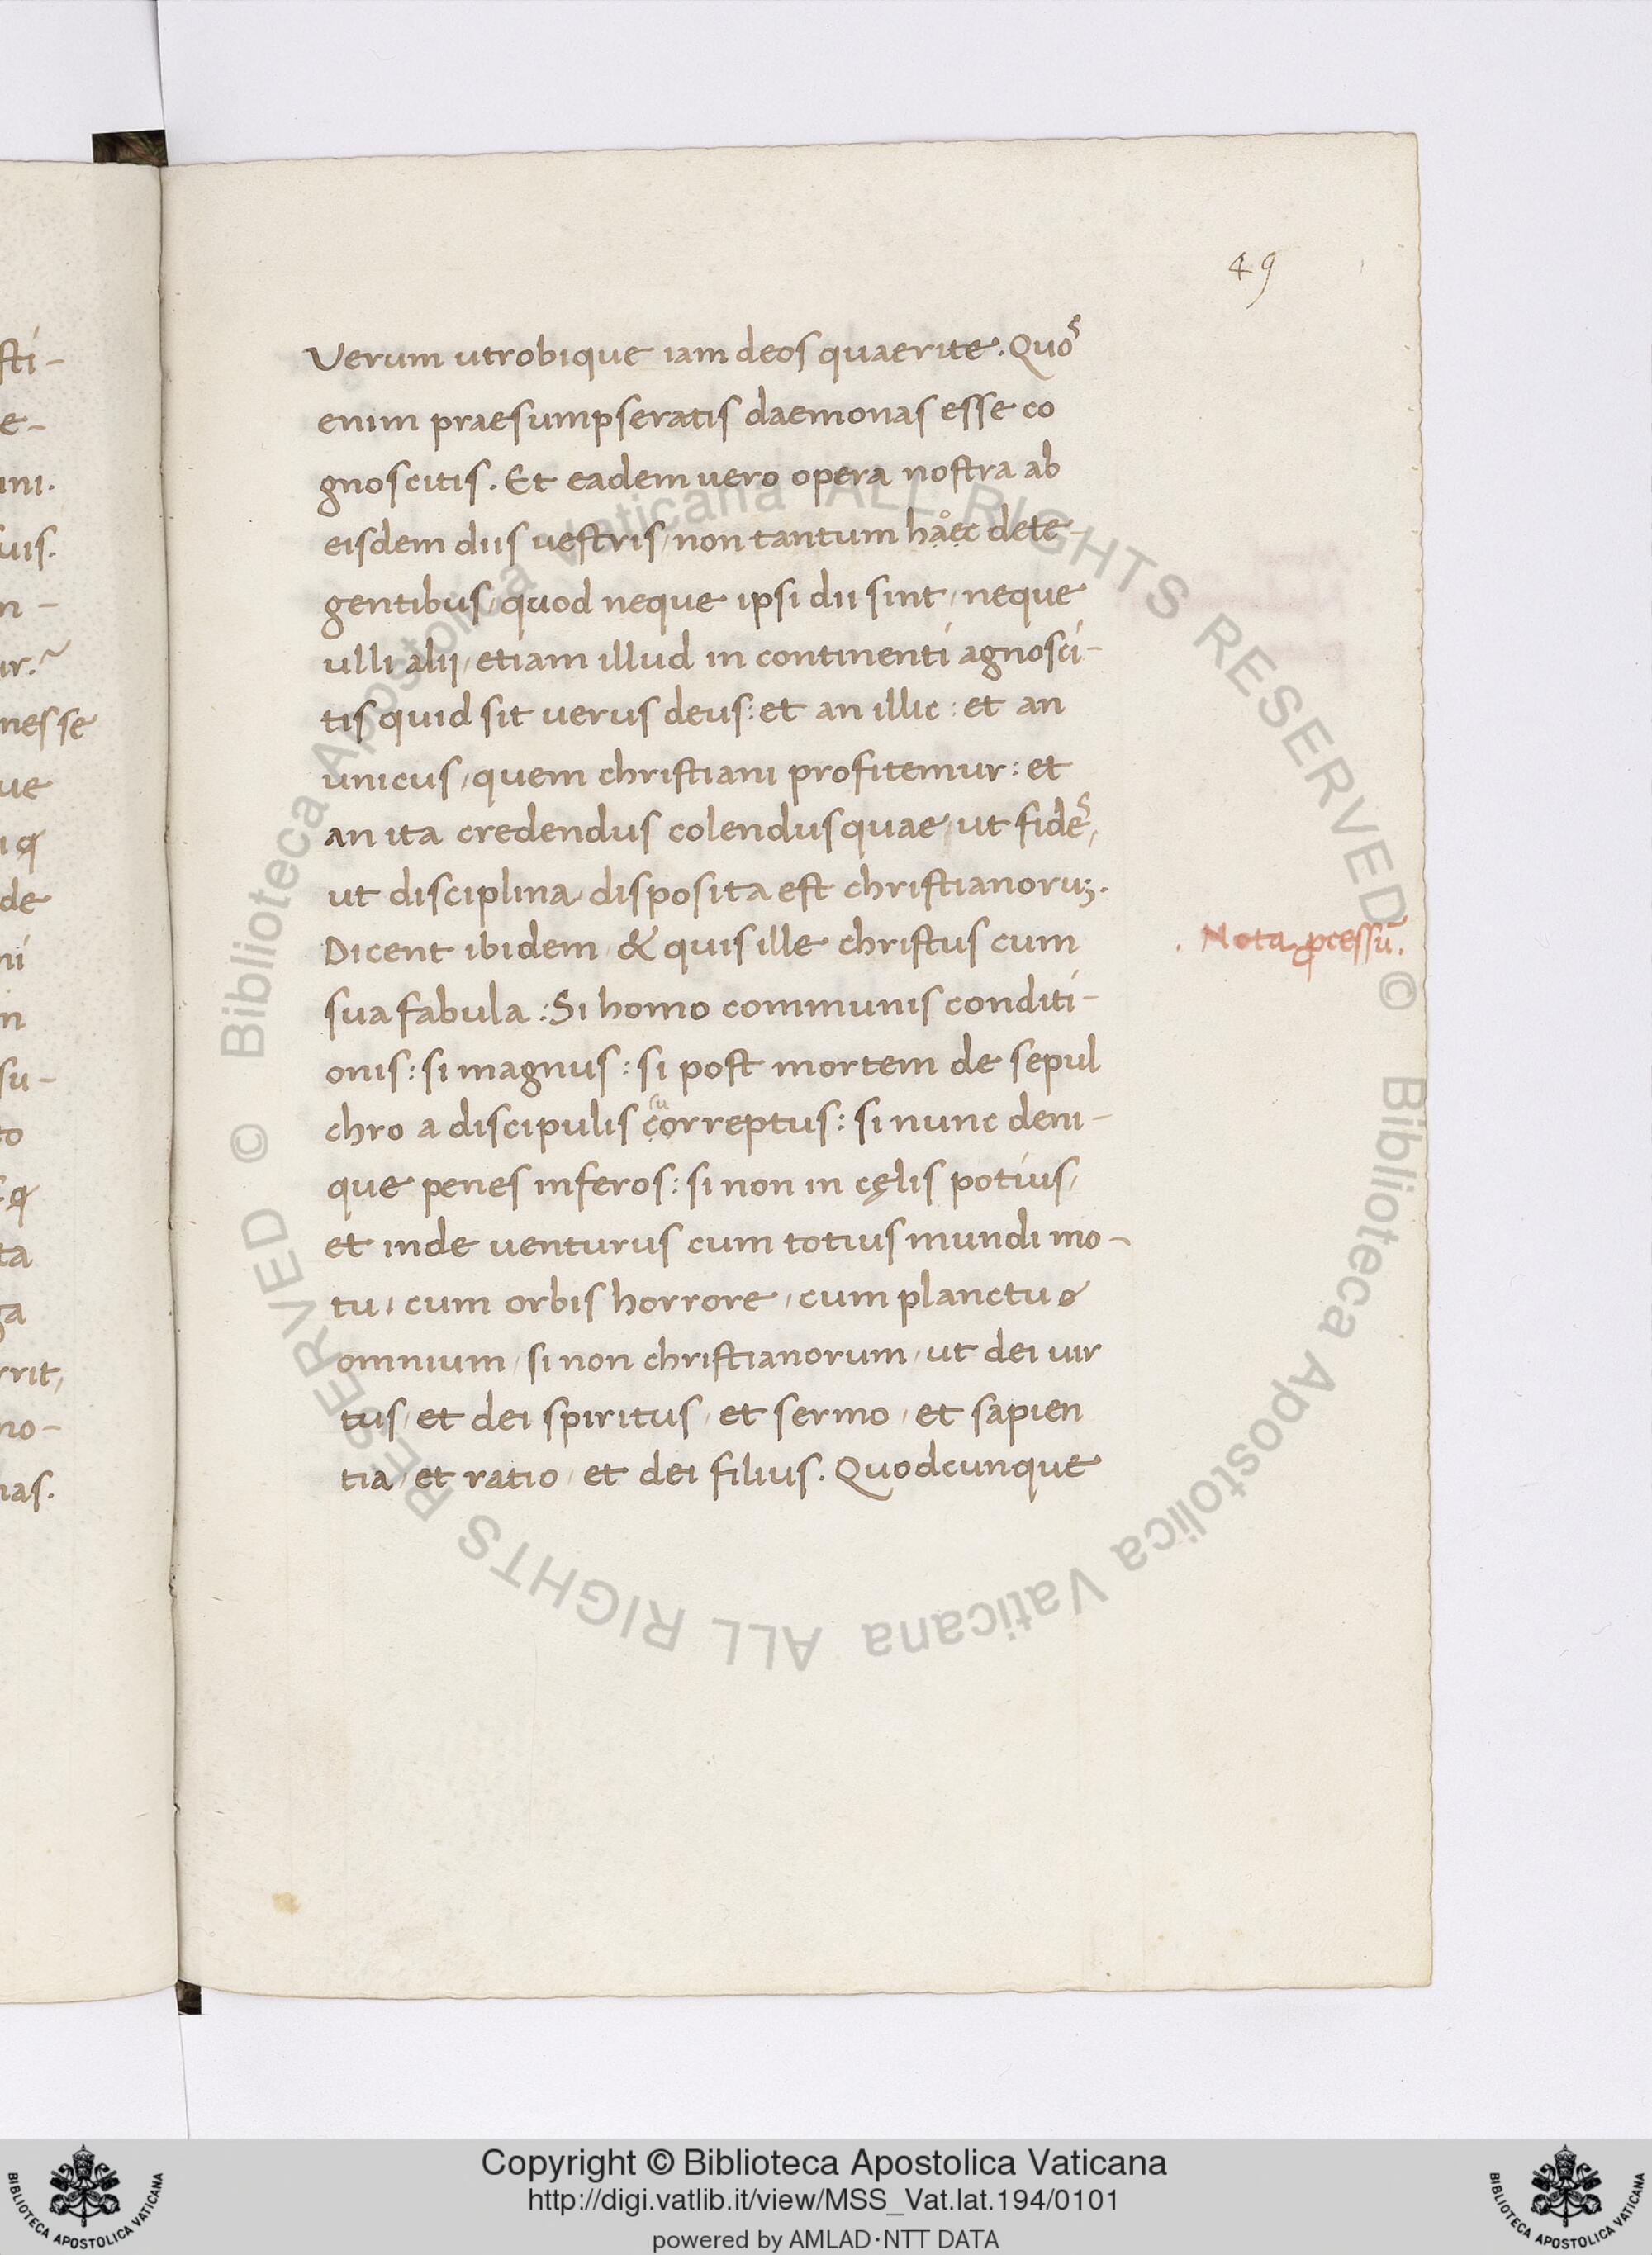 49
Verum utrobique iam deos quaerite. Quoˢ
enim praesumpseratis daemonas esse co
gnoscitis. Et eadem vero opera nostra ab
eisdem diis vestris/ non tantum haͦec dete-
gentibus/ quod neque ipsi dii sint/ neque
ulli alij/ etiam illud in continenti agnosci-
tis quid sit verus deus: et an illic: et an
unicus/ quem christiani profitemur: et
an ita credendus colendusquae/ ut fideˢ/
ut disciplina disposita est christianoruꝫ.
Dicent ibidem & quis ille christus cum
. Nota ꝓcessū.
sua fabula: Si homo communis conditi-
onis: si magnus: si post mortem de sepul
su
chro a discipulis correptus: si nunc deni-
que penes inferos: si non in cęlis potius/
et inde venturus cum totius mundi mo-
tu/ cum orbis horrore/ cum planctu
omnium/ si non christianorum/ ut dei vir
tus/ et dei spiritus/ et sermo/ et sapien
tia/ et ratio/ et dei filius. Quodcunque
sti-
e-
uis.
n-
nesse
ue
de
su-
ta
rrit,
no-
nas.
© Biblioteca Apostolica Vaticana ALL RIGHTS RESERVED © Biblioteca Apostolica Vaticana ALL RIGHTS RESERVED
Copyright © Biblioteca Apostolica Vaticana
http://digi.vatlib.it/view/MSS_Vat.lat.194/0101
powered by AMLAD·NTT DATA
BIBLIOTECA APOSTOLICA VATICANA
BIBLIOTECA APOSTOLICA VATICANA